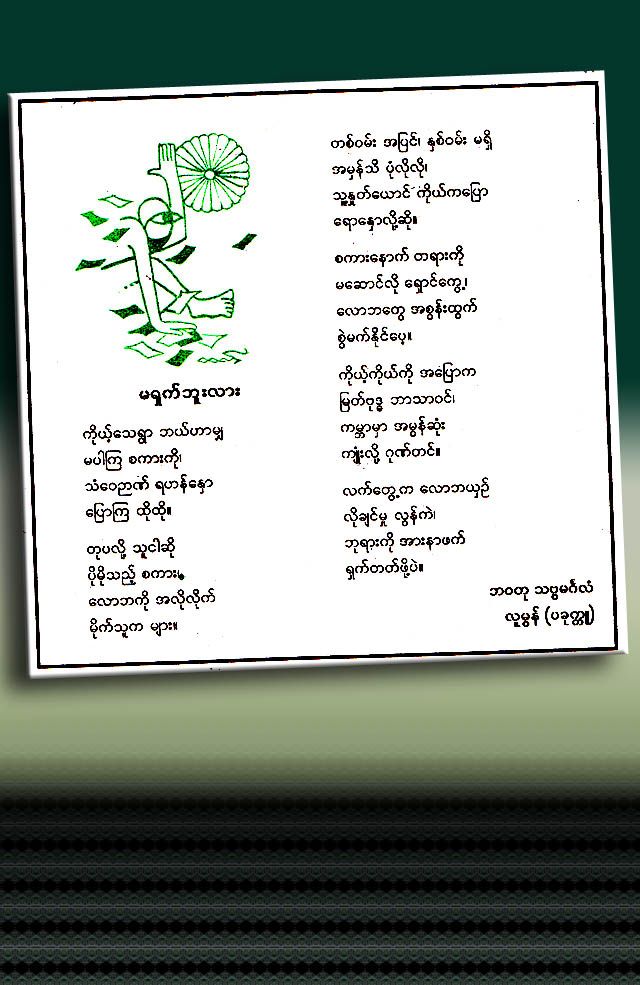 မရှက်ဘူးလား
ကိုယ့်သေရွာ ဘယ်ဟာမျှ
မပါကြ စကားကို၊
သံဝေဉာဏ် ရဟန်နှော
ပြောကြ ထိုထို။
တုပလို့ သူငါဆို
ပိုမိုသည့် စကား၊
လောဘကို အလိုလိုက်
မိုက်သူက များ။
တစ်ဝမ်း အပြင်၊ နှစ်ဝမ်း မရှိ
အမှန်သိ ပုံလိုလို၊
သူ့နှုတ်ယောင် ကိုယ်ကပြော
ရောနှောလို့ဆို။
စကားနောက် တရားကို
မဆောင်လို ရှောင်ကွေ့၊
လောဘတွေ အစွန်းထွက်
စွဲမက်နိုင်ပေ့။
ကိုယ့်ကိုယ်ကို အပြောက
မြတ်ဗုဒ္ဓ ဘာသာဝင်၊
ကမ္ဘာမှာ အမွန်ဆုံး
ကျုံးလို့ ဂုဏ်တင်။
လက်တွေ့က လောဘယှဉ်
လိုချင်မှု လွန်ကဲ၊
ဘုရားကို အားနာဖက်
ရှက်တတ်ဖို့ပဲ။
ဘဝတု သဗ္ဗမင်္ဂလံ
လူမွန် (ပခုက္ကူ)